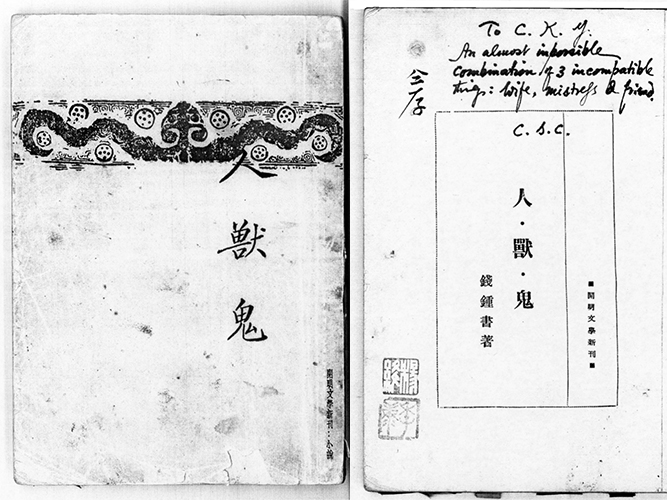 人獸鬼
開明文學新刊：小說
To C. K. Y.
An almost impossible
combination of 3 incompatible
things: wife, mistress & friend.
C. S. C.
人·獸·鬼
錢鍾書著
■開明文學新刊■